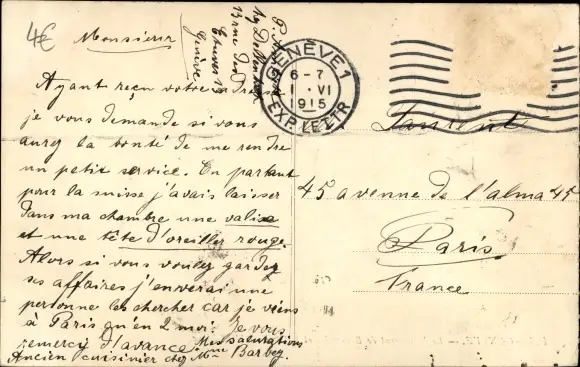 4€
Monsieur
Ayant reçu votre adresse
je vous demande si vous
aurez la bonté de me rendre
un petit service. En partant
pour la suisse j'avais laisser
dans ma chambre une valise
et une tête d'oreiller rouge.
Alors si vous voulez gardez
ses affaires j'enverai une
personne les chercher car je viens
à Paris qu'en 2 moi. je vous
remercy d'avance. Mes salutations
Ancien cuisinier chez Mme Barbey.
13 rue des
Genève
GENÈVE 1
6-7
1 VI
1915
EXP. LETTR.
Laurent
45 avenue de l'alma 45
Paris
France